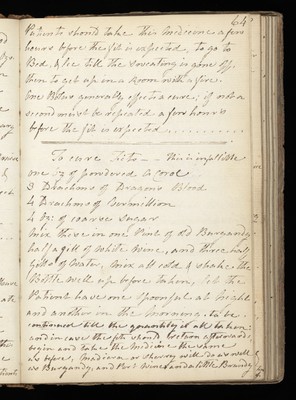 64
Patients should take this Medicine a few
hours before the fit is expected, to go to
Bed, & lie till the sweating is gone off,
then to get up in a Room with a fire.
One Bolus generally effects a cure; if not a
second must be repeated a few hours
before the fit is expected
To cure Fits — This is infallible
one oz of powdered Coral
3 Drachms of Dragons Blood
4 Drachms of Vermillion
4 oz: of coarse Sugar
Mix these in one Pint of Old Burgundy
half a gill of White Wine, and three half
Gills of Water, Mix all cold & shake the
Bottle well up before taken, let the
Patient have one Spoonful at Night
and another in the Morning, to be
continued till the quantity is all taken
and in case the fits should return afterwards,
begin and take the Medicine the same
as before, Madeira or Sherry will do as well
as Burgundy, and Port Wine and a little Brandy